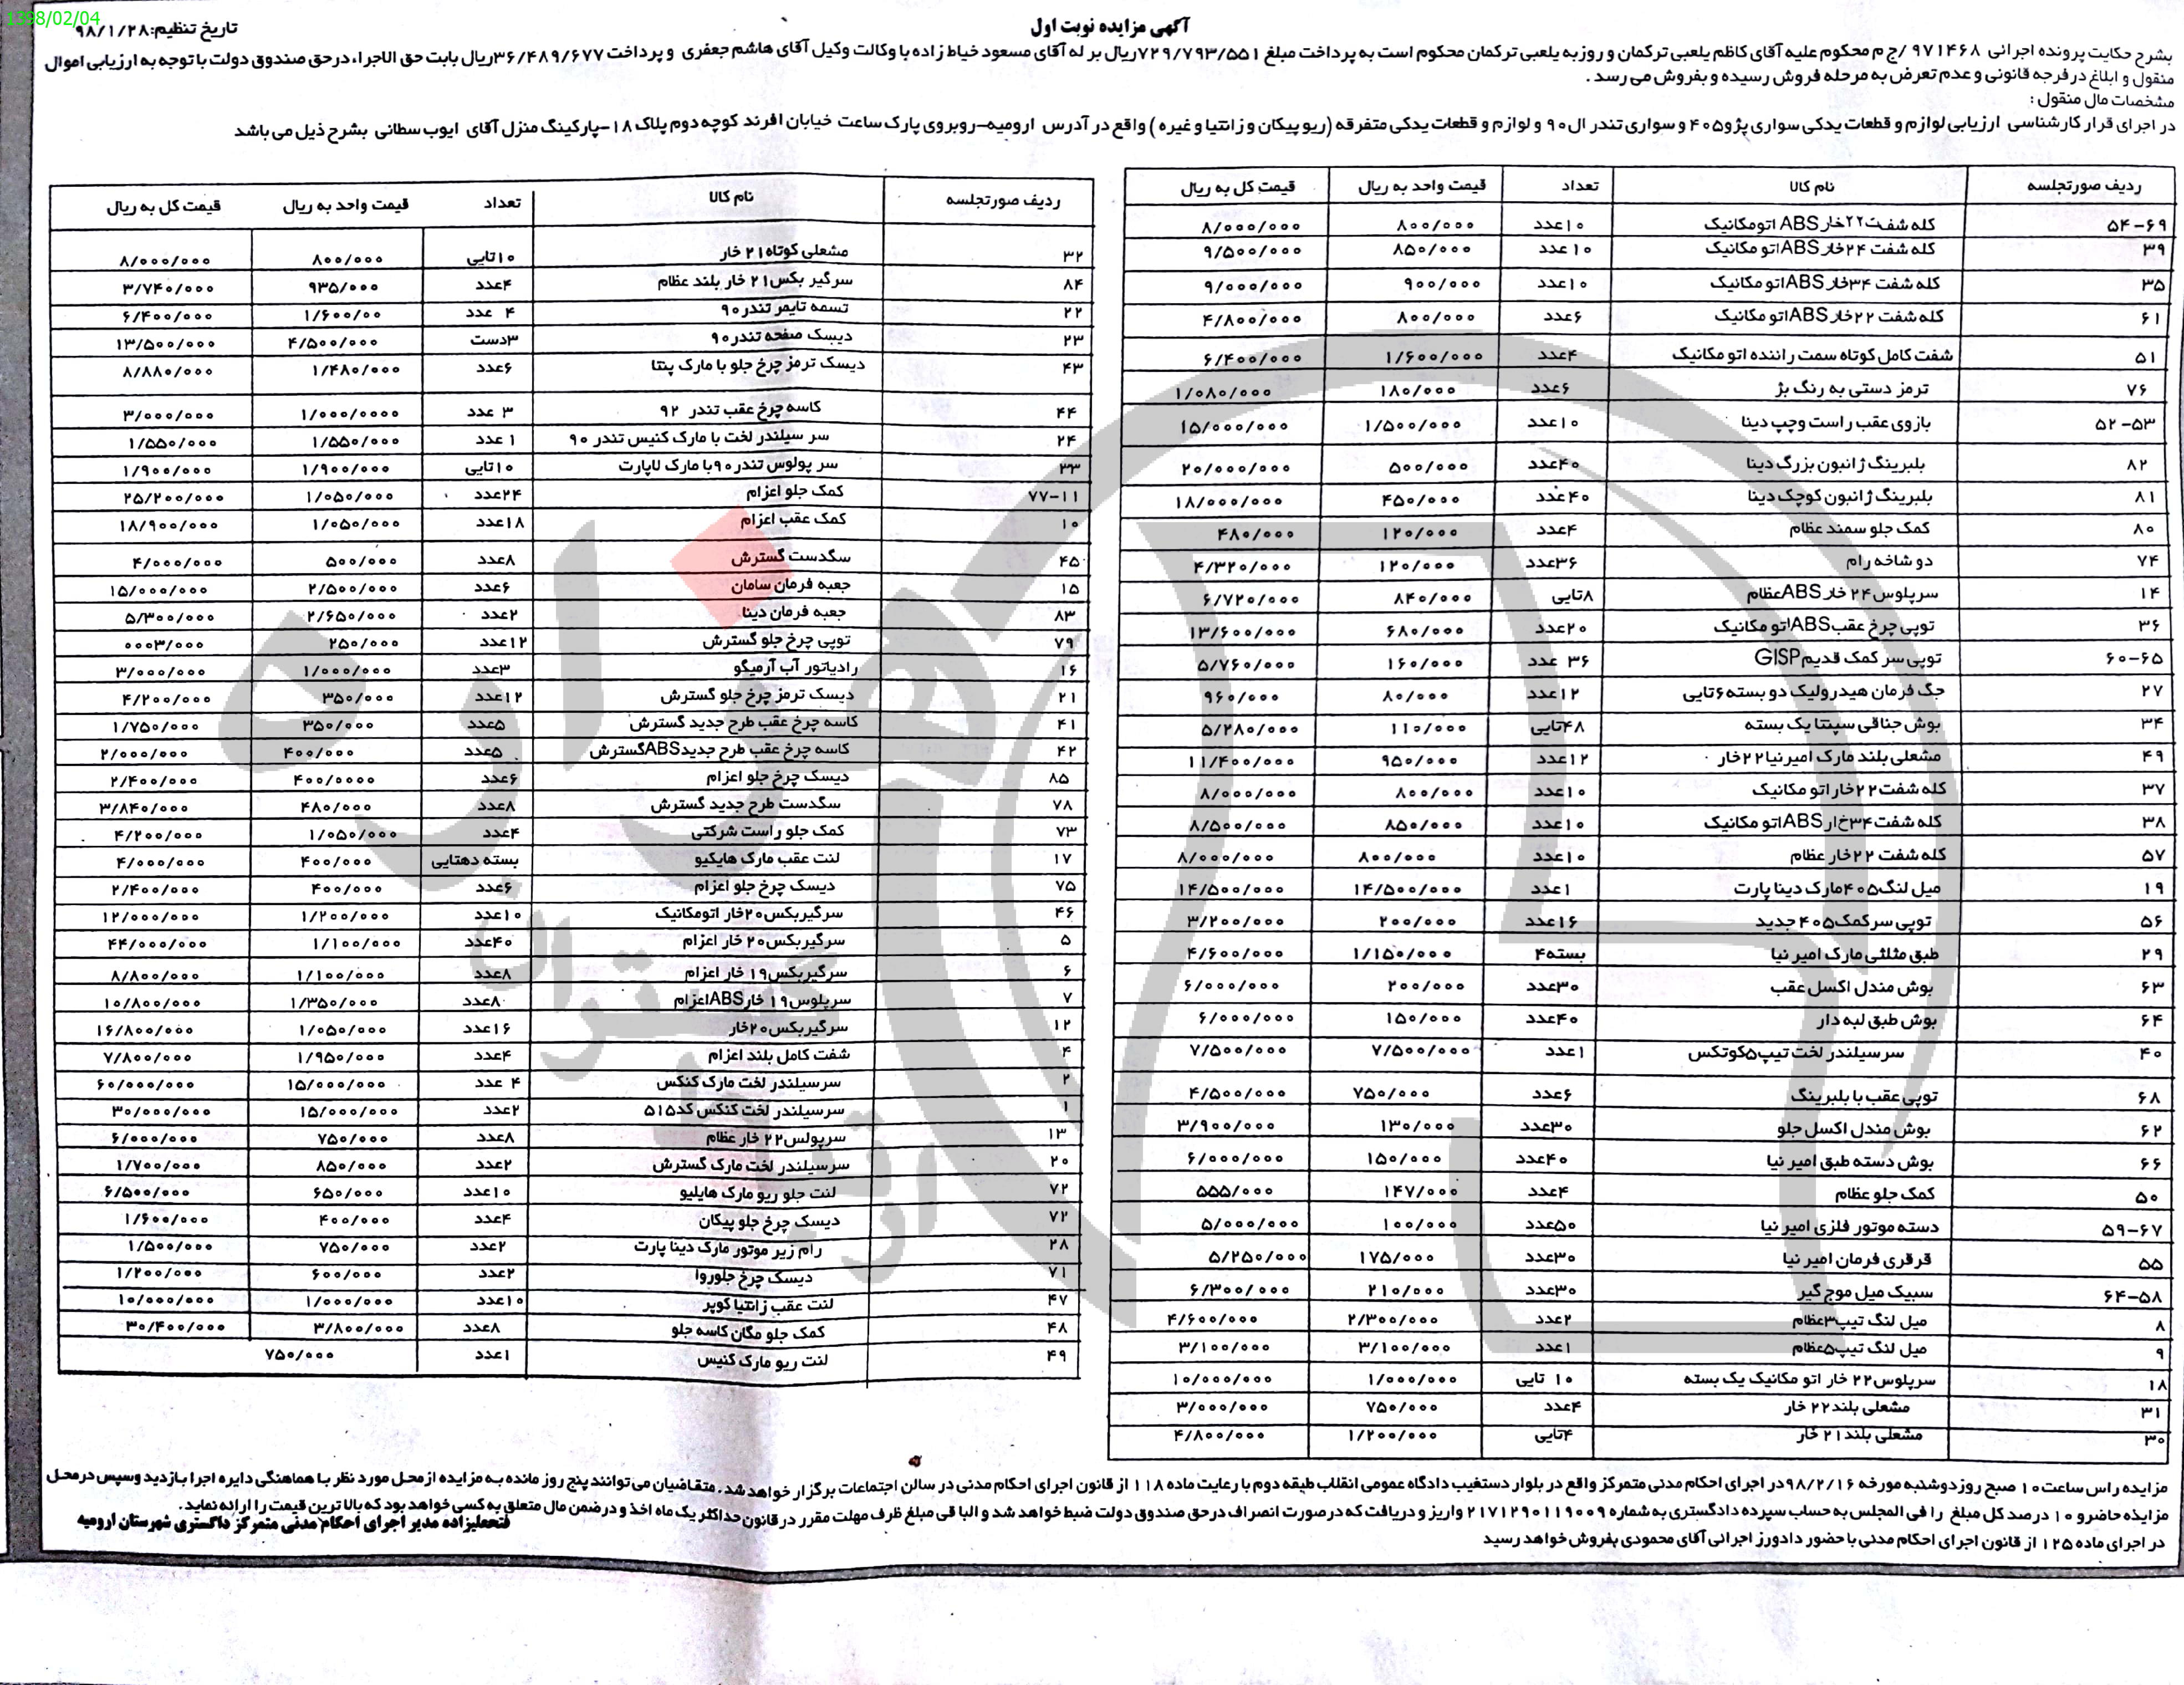 1398/02/04
آگهی مزایده نوبت اول
تاریخ تنظیم:۹۸/۱/۲۸
بشرح حکایت پرونده اجرائی ۹۷۱۴۶۸ /ج م محکوم علیه آقای کاظم یلعبی ترکمان و روز به یلعبی ترکمان محکوم است به پرداخت مبلغ ۷۲۹/۷۹۳/۵۵۱ریال بر له آقای مسعود خیاط زاده با وکالت وکیل آقای هاشم جعفری و پرداخت ۳۶/۴۸۹/۶۷۷ریال بابت حق الاجراء، درحق صندوق دولت با توجه به ارزیابی اموال
منقول و ابلاغ در فرجه قانونی و عدم تعرض به مرحله فروش رسیده و بفروش می رسد .
مشخصات مال منقول :
در اجرای قرار کارشناسی ارزیابی لوازم و قطعات یدکی سواری پژو۴۰۵ و سواری تندر ال۹۰ و لوازم و قطعات یدکی متفرقه (ریو پیکان و زانتیا و غیره ) واقع در آدرس ارومیه–روبروی پارک ساعت خیابان افرند کوچه دوم پلاک ۱۸–پارکینگ منزل آقای ایوب سطانی بشرح ذیل می باشد
ردیف صورتجلسه نام کالا تعداد قیمت واحد به ریال قیمت کل به ریال
۵۴-۶۹ کله شفت۲۲خارABS اتومکانیک ۱۰عدد ۸۰۰/۰۰۰ ۸/۰۰۰/۰۰۰
۳۹ کله شفت ۲۴خارABSاتو مکانیک ۱۰ عدد ۸۵۰/۰۰۰ ۹/۵۰۰/۰۰۰
۳۵ کله شفت ۳۴خارABSاتو مکانیک ۱۰عدد ۹۰۰/۰۰۰ ۹/۰۰۰/۰۰۰
۶۱ کله شفت ۲۲خارABSاتو مکانیک ۶عدد ۸۰۰/۰۰۰ ۴/۸۰۰/۰۰۰
۵۱ شفت کامل کوتاه سمت راننده اتو مکانیک ۴عدد ۱/۶۰۰/۰۰۰ ۶/۴۰۰/۰۰۰
۷۶ ترمز دستی به رنگ بژ ۶عدد ۱۸۰/۰۰۰ ۱/۰۸۰/۰۰۰
۵۲-۵۳ بازوی عقب راست وچپ دینا ۱۰عدد ۱/۵۰۰/۰۰۰ ۱۵/۰۰۰/۰۰۰
۸۲ بلبرینگ ژانبون بزرگ دینا ۴۰عدد ۵۰۰/۰۰۰ ۲۰/۰۰۰/۰۰۰
۸۱ بلبرینگ ژانبون کوچک دینا ۴۰عدد ۴۵۰/۰۰۰ ۱۸/۰۰۰/۰۰۰
۸۰ کمک جلو سمند عظام ۴عدد ۱۲۰/۰۰۰ ۴۸۰/۰۰۰
۷۴ دو شاخه رام ۳۶عدد ۱۲۰/۰۰۰ ۴/۳۲۰/۰۰۰
۱۴ سرپلوس ۲۴ خار ABSعظام ۸تایی ۸۴۰/۰۰۰ ۶/۷۲۰/۰۰۰
۳۶ توپی چرخ عقبABSاتو مکانیک ۲۰عدد ۶۸۰/۰۰۰ ۱۳/۶۰۰/۰۰۰
۶۰-۶۵ توپی سر کمک قدیمGISP ۳۶ عدد ۱۶۰/۰۰۰ ۵/۷۶۰/۰۰۰
۲۷ جگ فرمان هیدرولیک دو بسته ۶تایی ۱۲عدد ۸۰/۰۰۰ ۹۶۰/۰۰۰
۳۴ بوش جناقی سپنتا یک بسته ۴۸تایی ۱۱۰/۰۰۰ ۵/۲۸۰/۰۰۰
۴۹ مشعلی بلند مارک امیرنیا ۲۲خار ۱۲عدد ۹۵۰/۰۰۰ ۱۱/۴۰۰/۰۰۰
۳۷ کله شفت۲۲خار اتو مکانیک ۱۰عدد ۸۰۰/۰۰۰ ۸/۰۰۰/۰۰۰
۳۸ کله شفت۳۴خارABSاتو مکانیک ۱۰عدد ۸۵۰/۰۰۰ ۸/۵۰۰/۰۰۰
۵۷ کله شفت ۲۲خار عظام ۱۰عدد ۸۰۰/۰۰۰ ۸/۰۰۰/۰۰۰
۱۹ میل لنگ۴۰۵مارک دینا پارت ۱عدد ۱۴/۵۰۰/۰۰۰ ۱۴/۵۰۰/۰۰۰
۵۶ توپی سرکمک۴۰۵جدید ۱۶عدد ۲۰۰/۰۰۰ ۳/۲۰۰/۰۰۰
۲۹ طبق مثلثی مارک امیر نیا بسته۴ ۱/۱۵۰/۰۰۰ ۴/۶۰۰/۰۰۰
۶۳ بوش مندل اکسل عقب ۳۰عدد ۲۰۰/۰۰۰ ۶/۰۰۰/۰۰۰
۶۴ بوش طبق لبه دار ۴۰عدد ۱۵۰/۰۰۰ ۶/۰۰۰/۰۰۰
۴۰ سرسیلندر لخت تیپ۵کوتکس ۱عدد ۷/۵۰۰/۰۰۰ ۷/۵۰۰/۰۰۰
۶۸ توپی عقب با بلبرینگ ۶عدد ۷۵۰/۰۰۰ ۴/۵۰۰/۰۰۰
۶۲ بوش مندل اکسل جلو ۳۰عدد ۱۳۰/۰۰۰ ۳/۹۰۰/۰۰۰
۶۶ بوش دسته طبق امیر نیا ۴۰عدد ۱۵۰/۰۰۰ ۶/۰۰۰/۰۰۰
۵۰ کمک جلو عظام ۴عدد ۱۴۷/۰۰۰ ۵۵۵/۰۰۰
۵۹-۶۷ دسته موتور فلزی امیر نیا ۵۰عدد ۱۰۰/۰۰۰ ۵/۰۰۰/۰۰۰
۵۵ قرقری فرمان امیر نیا ۳۰عدد ۱۷۵/۰۰۰ ۵/۲۵۰/۰۰۰
۶۴-۵۸ سیبک میل موج گیر ۳۰عدد ۲۱۰/۰۰۰ ۶/۳۰۰/۰۰۰
۸ میل لنگ تیپ۳عظام ۲عدد ۲/۳۰۰/۰۰۰ ۴/۶۰۰/۰۰۰
۹ میل لنگ تیپ۵عظام ۱عدد ۳/۱۰۰/۰۰۰ ۳/۱۰۰/۰۰۰
۱۸ سرپلوس۲۲ خار اتو مکانیک یک بسته ۱۰ تایی ۱/۰۰۰/۰۰۰ ۱۰/۰۰۰/۰۰۰
۳۱ مشعلی بلند۲۲ خار ۴عدد ۷۵۰/۰۰۰ ۳/۰۰۰/۰۰۰
۳۰ مشعلی بلند۲۱ خار ۴تایی ۱/۲۰۰/۰۰۰ ۴/۸۰۰/۰۰۰
ردیف صورتجلسه نام کالا تعداد قیمت واحد به ریال قیمت کل به ریال
۳۲ مشعلی کوتاه۲۱ خار ۱۰تایی ۸۰۰/۰۰۰ ۸/۰۰۰/۰۰۰
۸۴ سرگیر بکس۲۱ خار بلند عظام ۴عدد ۹۳۵/۰۰۰ ۳/۷۴۰/۰۰۰
۲۲ تسمه تایمر تندر۹۰ ۴ عدد ۱/۶۰۰/۰۰ ۶/۴۰۰/۰۰۰
۲۳ دیسک صفحه تندر۹۰ ۳دست ۴/۵۰۰/۰۰۰ ۱۳/۵۰۰/۰۰۰
۴۳ دیسک ترمز چرخ جلو با مارک پنتا ۶عدد ۱/۴۸۰/۰۰۰ ۸/۸۸۰/۰۰۰
۴۴ کاسه چرخ عقب تندر ۹۲ ۳ عدد ۱/۰۰۰/۰۰۰۰ ۳/۰۰۰/۰۰۰
۲۴ سر سیلندر لخت با مارک کنیس تندر ۹۰ ۱ عدد ۱/۵۵۰/۰۰۰ ۱/۵۵۰/۰۰۰
۳۳ سر پولوس تندر۹۰با مارک لاپارت ۱۰تایی ۱/۹۰۰/۰۰۰ ۱/۹۰۰/۰۰۰
۷۷-۱۱ کمک جلو اعزام ۲۴عدد ۱/۰۵۰/۰۰۰ ۲۵/۲۰۰/۰۰۰
۱۰ کمک عقب اعزام ۱۸عدد ۱/۰۵۰/۰۰۰ ۱۸/۹۰۰/۰۰۰
۴۵ سگدست گسترش ۸عدد ۵۰۰/۰۰۰ ۴/۰۰۰/۰۰۰
۱۵ جعبه فرمان سامان ۶عدد ۲/۵۰۰/۰۰۰ ۱۵/۰۰۰/۰۰۰
۸۳ جعبه فرمان دینا ۲عدد ۲/۶۵۰/۰۰۰ ۵/۳۰۰/۰۰۰
۷۹ توپی چرخ جلو گسترش ۱۲عدد ۲۵۰/۰۰۰ ۰۰۰۳/۰۰۰
۱۶ رادیاتور آب آرمیگو ۳عدد ۱/۰۰۰/۰۰۰ ۳/۰۰۰/۰۰۰
۲۱ دیسک ترمز چرخ جلو گسترش ۱۲عدد ۳۵۰/۰۰۰ ۴/۲۰۰/۰۰۰
۴۱ کاسه چرخ عقب طرح جدید گسترش ۵عدد ۳۵۰/۰۰۰ ۱/۷۵۰/۰۰۰
۴۲ کاسه چرخ عقب طرح جدیدABSگسترش ۵عدد ۴۰۰/۰۰۰ ۲/۰۰۰/۰۰۰
۸۵ دیسک چرخ جلو اعزام ۶عدد ۴۰۰/۰۰۰۰ ۲/۴۰۰/۰۰۰
۷۸ سگدست طرح جدید گسترش ۸عدد ۴۸۰/۰۰۰ ۳/۸۴۰/۰۰۰
۷۳ کمک جلو راست شرکتی ۴عدد ۱/۰۵۰/۰۰۰ ۴/۲۰۰/۰۰۰
۱۷ لنت عقب مارک هایکیو بسته دهتایی ۴۰۰/۰۰۰ ۴/۰۰۰/۰۰۰
۷۵ دیسک چرخ جلو اعزام ۶عدد ۴۰۰/۰۰۰ ۲/۴۰۰/۰۰۰
۴۶ سرگیربکس۲۰خار اتومکانیک ۱۰عدد ۱/۲۰۰/۰۰۰ ۱۲/۰۰۰/۰۰۰
۵ سرگیربکس۲۰ خار اعزام ۴۰عدد ۱/۱۰۰/۰۰۰ ۴۴/۰۰۰/۰۰۰
۶ سرگیربکس۱۹ خار اعزام ۸عدد ۱/۱۰۰/۰۰۰ ۸/۸۰۰/۰۰۰
۷ سرپلوس۱۹ خارABSاعزام ۸عدد ۱/۳۵۰/۰۰۰ ۱۰/۸۰۰/۰۰۰
۱۲ سرگیربکس۲۰خار ۱۶عدد ۱/۰۵۰/۰۰۰ ۱۶/۸۰۰/۰۰۰
۴ شفت کامل بلند اعزام ۴عدد ۱/۹۵۰/۰۰۰ ۷/۸۰۰/۰۰۰
۲ سرسیلندر لخت مارک کنکس ۴ عدد ۱۵/۰۰۰/۰۰۰ ۶۰/۰۰۰/۰۰۰
۱ سرسیلندر لخت کنکس کد۵۱۵ ۲عدد ۱۵/۰۰۰/۰۰۰ ۳۰/۰۰۰/۰۰۰
۱۳ سرپولس۲۲ خار عظام ۸عدد ۷۵۰/۰۰۰ ۶/۰۰۰/۰۰۰
۲۰ سرسیلندر لخت مارک گسترش ۲عدد ۸۵۰/۰۰۰ ۱/۷۰۰/۰۰۰
۷۲ لنت جلو ریو مارک هایلیو ۱۰عدد ۶۵۰/۰۰۰ ۶/۵۰۰/۰۰۰
۷۲ دیسک چرخ جلو پیکان ۴عدد ۴۰۰/۰۰۰ ۱/۶۰۰/۰۰۰
۲۸ رام زیر موتور مارک دینا پارت ۲عدد ۷۵۰/۰۰۰ ۱/۵۰۰/۰۰۰
۷۱ دیسک چرخ جلوروا ۲عدد ۶۰۰/۰۰۰ ۱/۲۰۰/۰۰۰
۴۷ لنت عقب زانتیا کوپر ۱۰عدد ۱/۰۰۰/۰۰۰ ۱۰/۰۰۰/۰۰۰
۴۸ کمک جلو مگان کاسه جلو ۸عدد ۳/۸۰۰/۰۰۰ ۳۰/۴۰۰/۰۰۰
۴۹ لنت ریو مارک کنیس ۱عدد ۷۵۰/۰۰۰
مزایده راس ساعت ۱۰ صبح روز دوشنبه مورخه ۹۸/۲/۱۶در اجرای احکام مدنی متمرکز واقع در بلوار دستغیب دادگاه عمومی انقلاب طبقه دوم با رعایت ماده ۱۱۸ از قانون اجرای احکام مدنی در سالن اجتماعات برگزار خواهد شد. متقاضیان می توانند پنج روز مانده به مزایده از محل مورد نظر با هماهنگی دایره اجرا بازدید وسپس در محل
مزایده حاضر و ۱۰ درصد کل مبلغ را فی المجلس به حساب سپرده دادگستری به شماره ۲۱۷۱۲۹۰۱۱۹۰۰۹ واریز و دریافت که در صورت انصراف درحق صندوق دولت ضبط خواهد شد و الباقی مبلغ ظرف مهلت مقرر در قانون حداکثر یک ماه اخذ و در ضمن مال متعلق به کسی خواهد بود که بالا ترین قیمت را ارائه نماید .
در اجرای ماده ۱۲۵ از قانون اجرای احکام مدنی با حضور دادورز اجرائی آقای محمودی بفروش خواهد رسید
فتحعلیزاده مدیر اجرای احکام مدنی متمرکز دادگستری شهرستان ارومیه